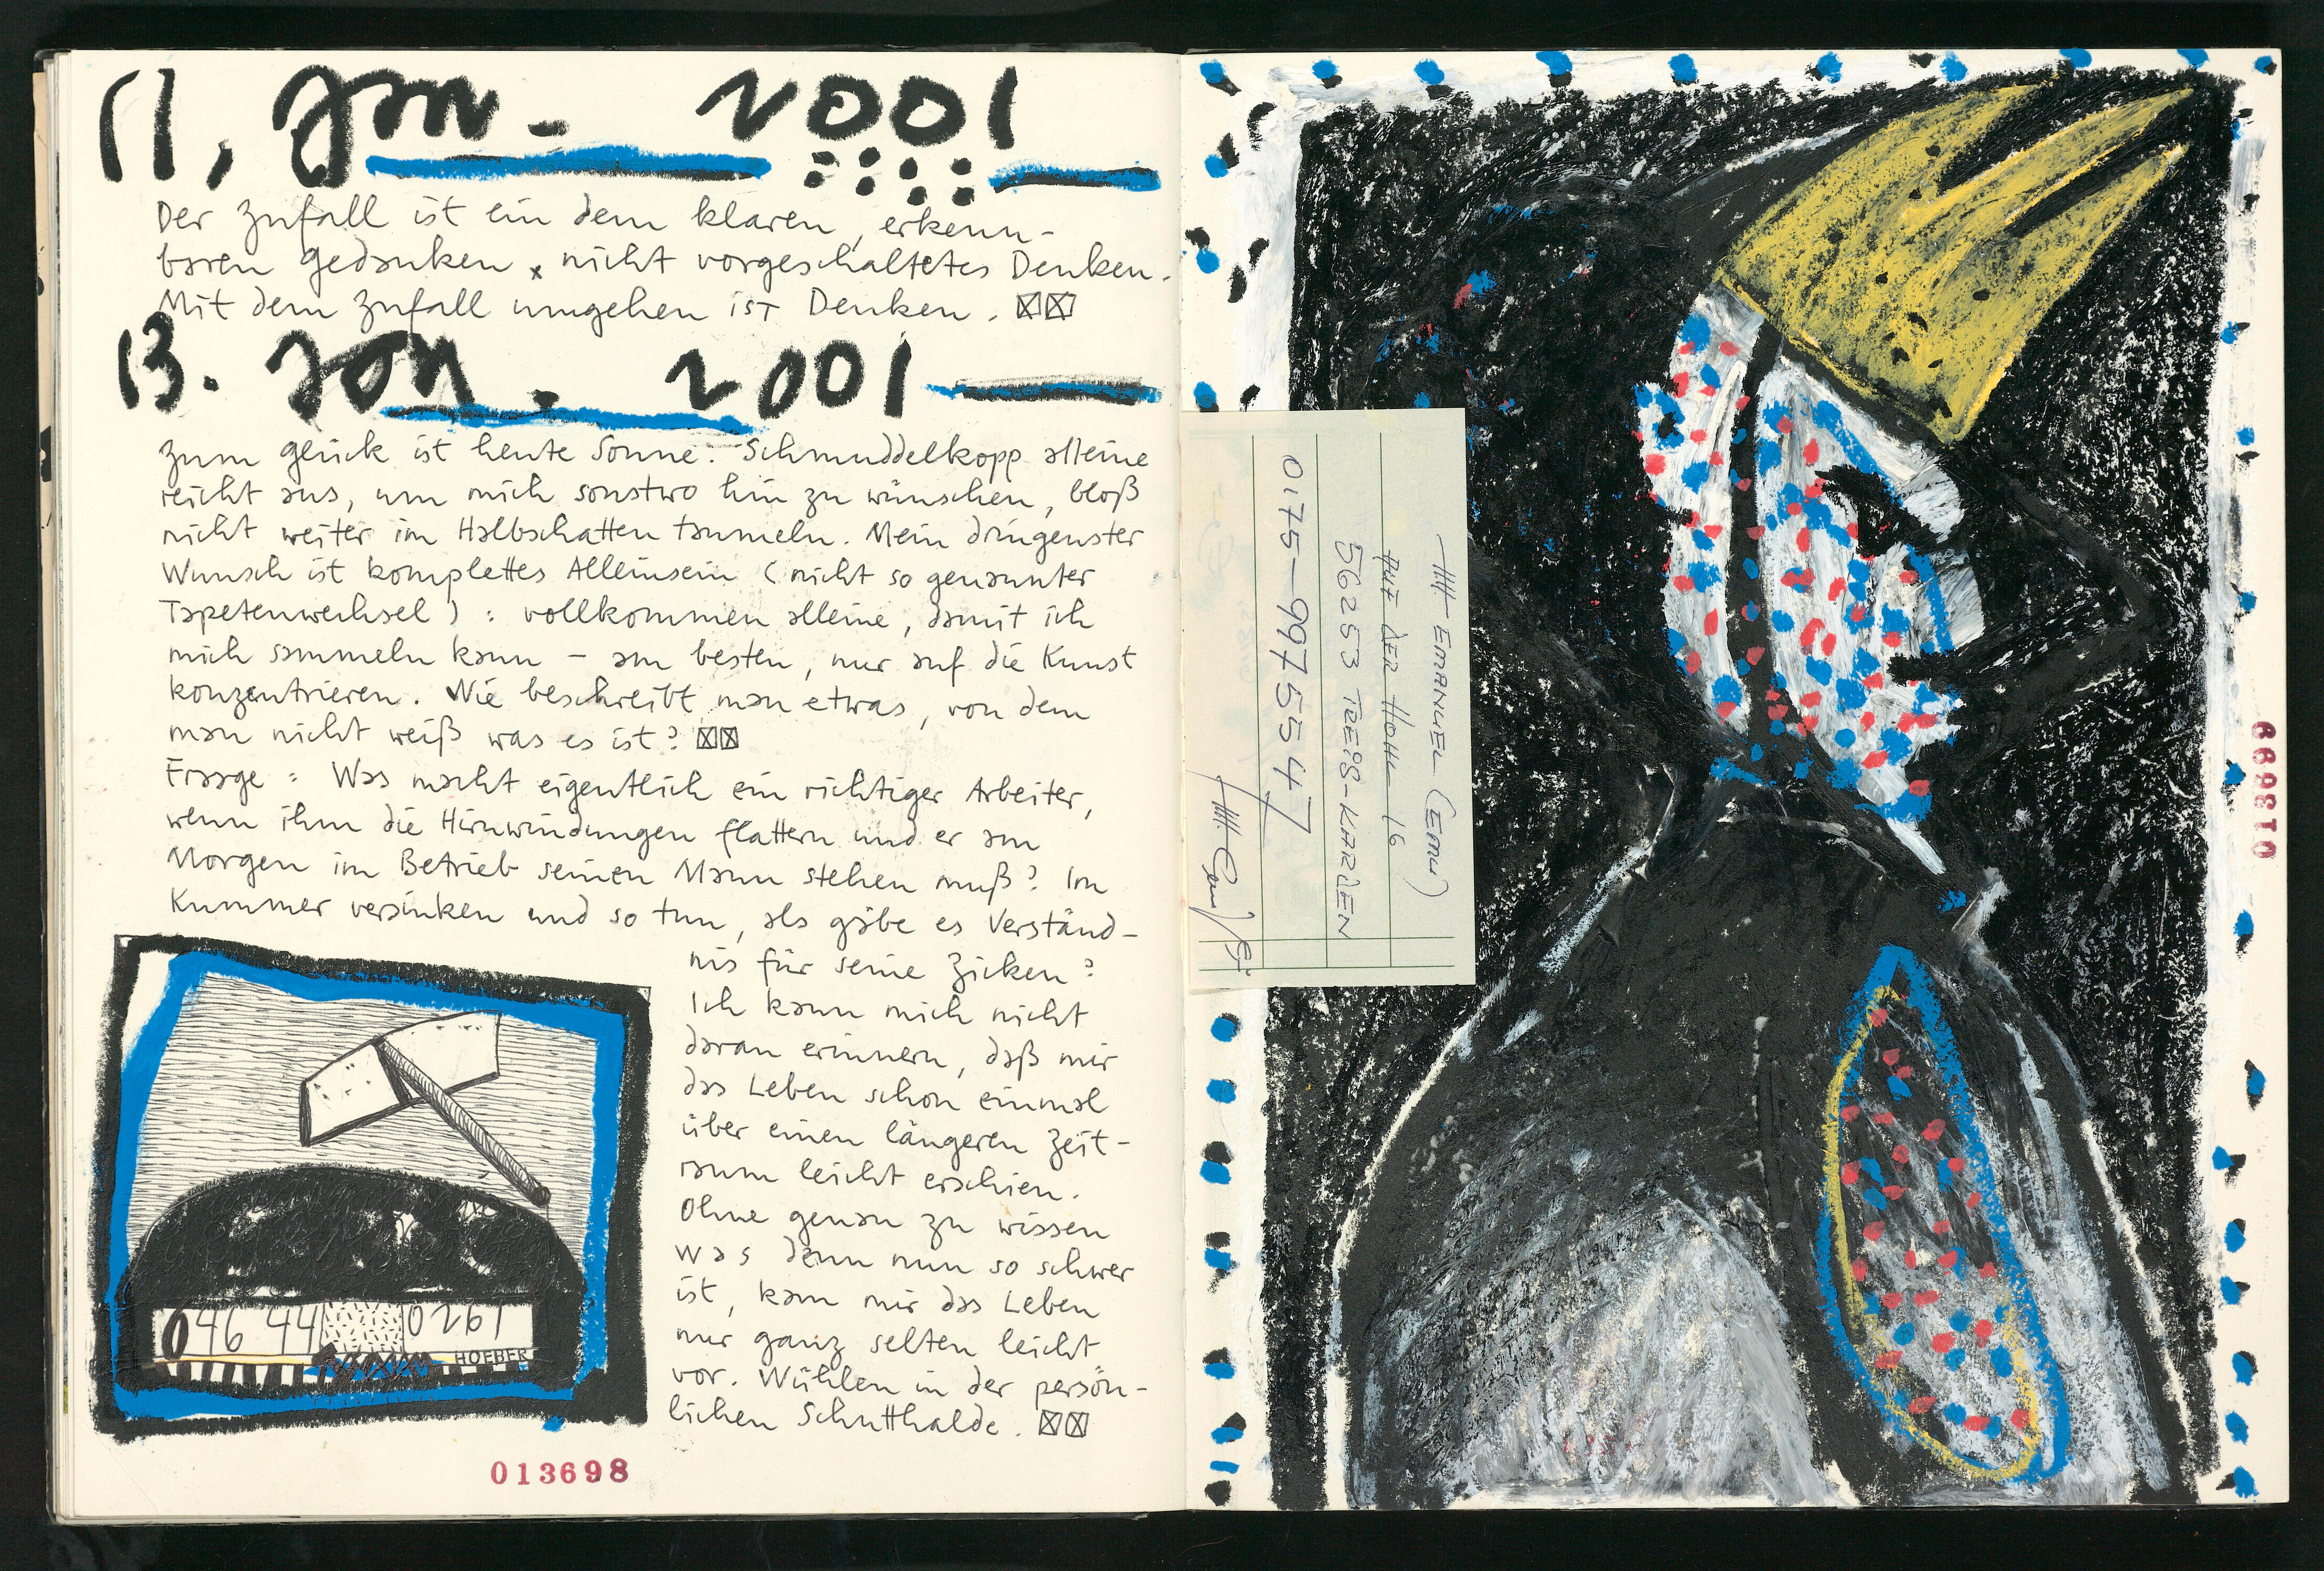 11, Jan. 2001
Der Zufall ist ein dem klaren, erkenn-
baren Gedanken x nicht vorgeschaltetes Denken.
Mit dem Zufall umgehen ist Denken. ☒☒
13. Jan. 2001
Zum Glück ist heute Sonne. Schmuddelkopp alleine
reicht aus, um mich sonstwo hin zu wünschen, bloß
nicht weiter im Halbschatten taumeln. Mein dringenster
Wunsch ist komplettes Alleinsein (nicht so genannter
Tapetenwechsel) : vollkommen alleine, damit ich
mich sammeln kann – am besten, nur auf die Kunst
konzentrieren. Wie beschreibt man etwas, von dem
man nicht weiß was es ist? ☒☒
Fraage : Was macht eigentlich ein richtiger Arbeiter,
wenn ihm die Hirnwindungen flattern und er am
Morgen im Betrieb seinen Mann stehen muß? Im
Kummer versinken und so tun, als gäbe es Verständ-
nis für seine Zicken?
Ich kann mich nicht
daran erinnern, daß mir
das Leben schon einmal
über einen längeren Zeit-
raum leicht erschien.
Ohne genau zu wissen
was denn nun so schwer
ist, kam mir das Leben
nur ganz selten leicht
vor. Wühlen in der persön-
lichen Schutthalde. ☒☒
046 44 0261
HOEBER
013698
EMANUEL (EMU)
AUF DER HOHL 16
56253 TREIS-KARDEN
0175-9975547
013699